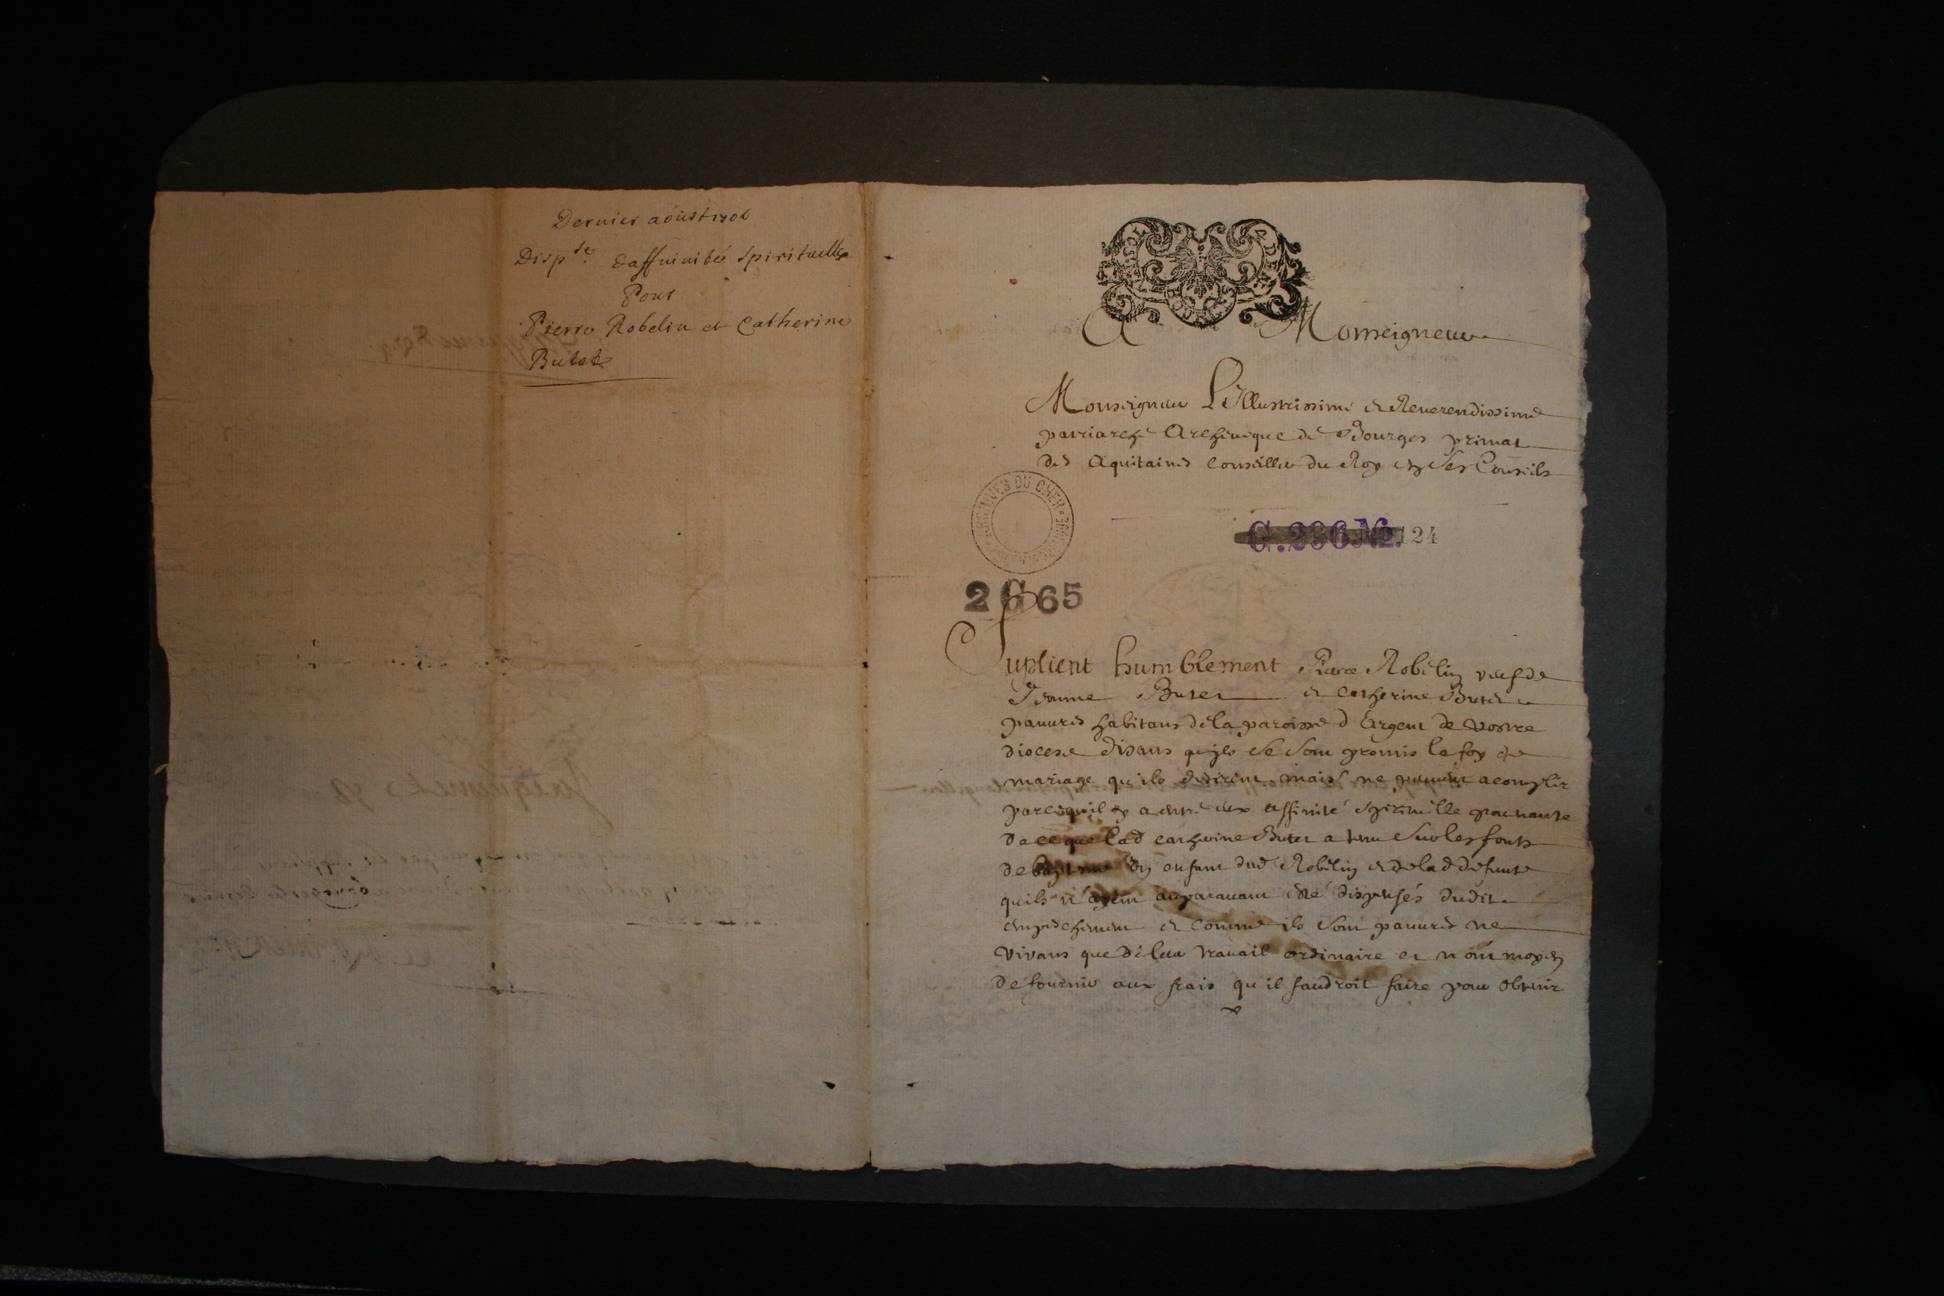 Dernier aoust 1706
Disp.se daffinitéé Spirituelle
Pour
Pierre Robelin et Catherine
Butet
A Monseigneur
Monseigneur L'Illustrissime et Reverendissime
patriarche Archeueque de Bourges primat
des Aquitaines Conseiller du Roy en Ses Conseils
ARCHIVES DU CHER
C.296 No. 124
2 G 65
Suplient humblement Pierre Robelin veuf de
Jeanne Butet et Catherine Butet
pauures habitans de la paroisse d'Argent de vostre
diocese disans qu'ils se sont promis la foy de
mariage qu'ils desirent mais ne peuuent acomplir
parcequ'il y a entre eux affinité spirituelle prouenante
de ce que lad Catherine Butet a tenu sur les fonts
de baptesme un enfant dud Robelin et de lad defunte
quils n'ayent auparauant esté dispensés dudit
empeschement et comme ils sont pauures ne
vivans que de leur trauail ordinaire et n'ont moyen
de fournir aux frais qu'il faudroit faire pour obtenir